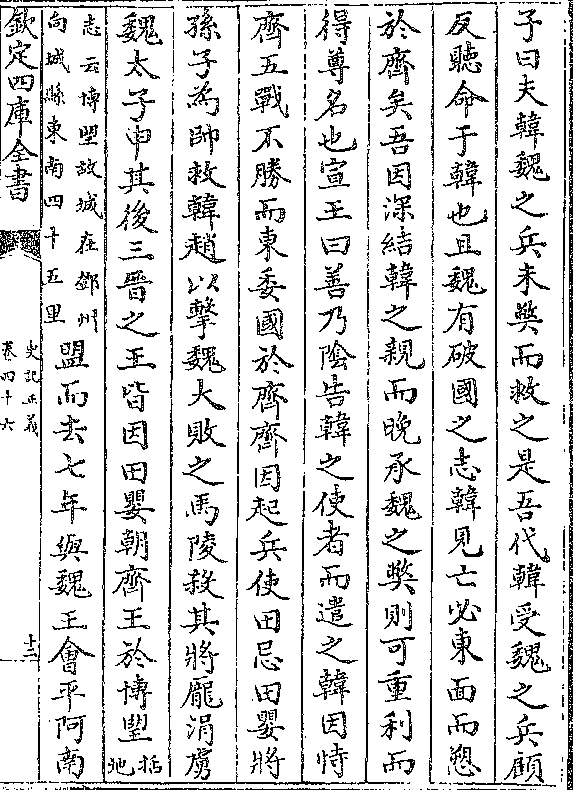 子曰夫韓魏之兵未獘而救之是吾代韓受魏之兵顧
反聽命于韓也且魏有破國之志韓見亡必東面而愬
於齊矣吾因深結韓之親而晚承魏之獘則可重利而
得尊名也宣王曰善乃陰告韓之使者而遣之韓因恃
齊五戰不勝而東委國於齊齊因起兵使田忌田嬰將
孫子為帥救韓趙以擊魏大敗之馬陵殺其將龐涓虜
魏太子申其後三晉之王皆因田嬰朝齊王於博望括地
志云博望故城在鄧州
向城縣東南四十五里
盟而去七年與魏王會平阿南
欽定四庫全書
史記正義
卷四十六
十二